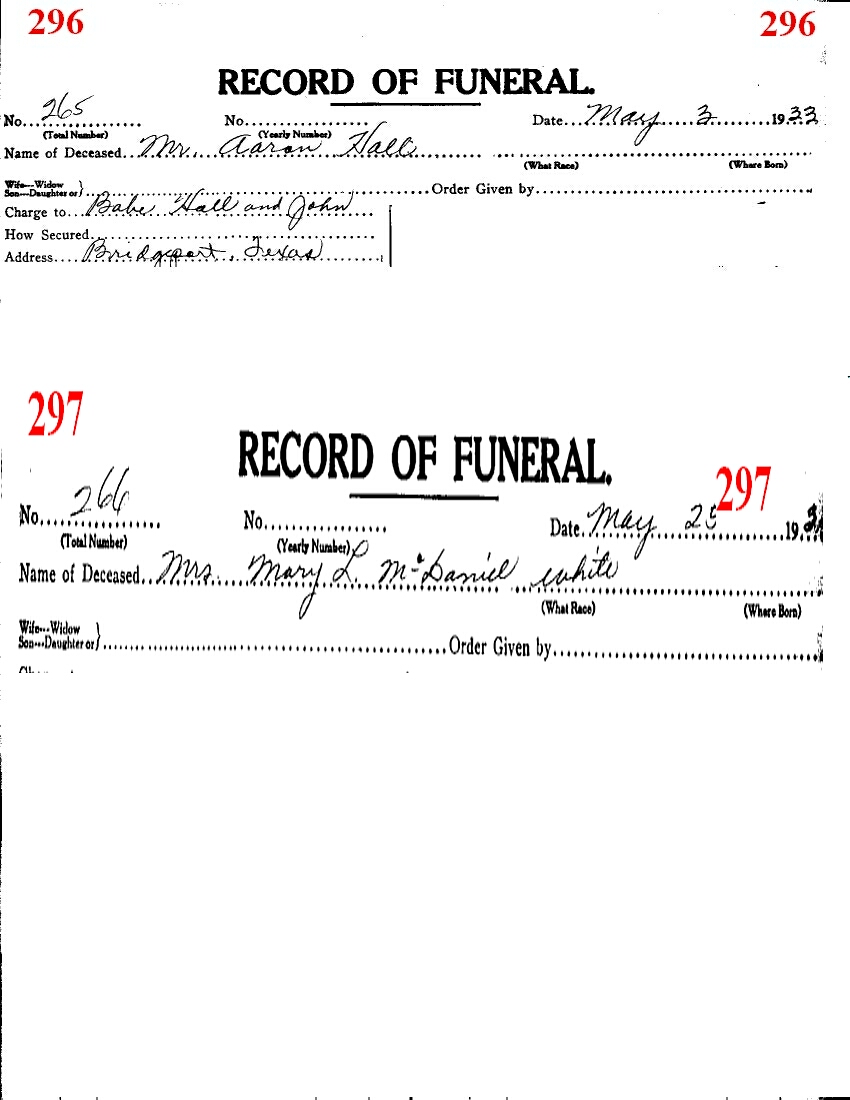 296 296
RECORD OF FUNERAL.
No. 265 No. Date May 3 1933
(Total Number) (Yearly Number)
Name of Deceased Mr. Aaron Hall
(What Race) (Where Born)
Wife---Widow
Son---Daughter or} Order Given by
Charge to Babe Hall and John
How Secured
Address Bridgeport, Texas
297
RECORD OF FUNERAL.
297
No. 266 No. Date May 25 193
(Total Number) (Yearly Number)
Name of Deceased Mrs. Mary L. McDaniel white
(What Race) (Where Born)
Wife---Widow
Son---Daughter or} Order Given by